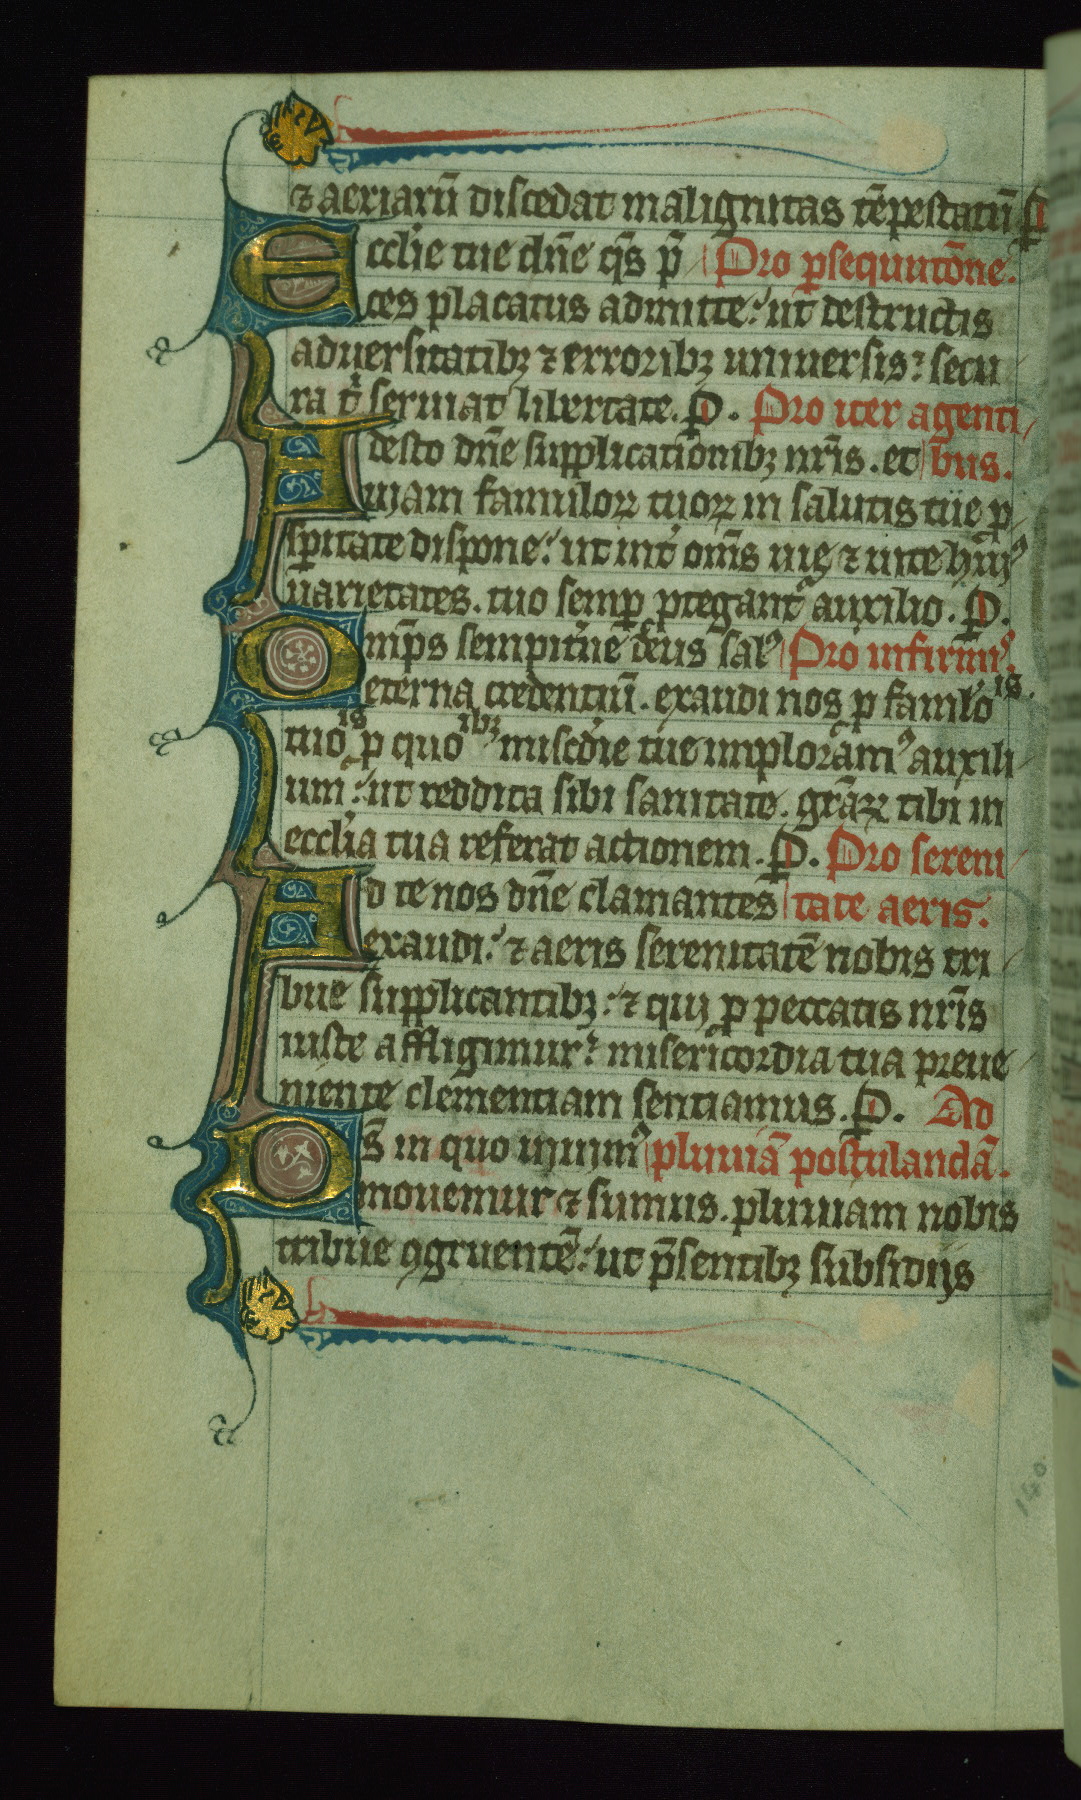 ⁊ aeriarū discedat malignitas tēpestatū P
Eccl'ie tue dn̄e q̄s p̄ Pro ꝑsequutōne.
ces placatus admitte: ut destructis
aduersitatibꝫ ⁊ erroribꝫ uniuersis: secu
ra t' seruiat libertate. P. Pro iter agenti
Adesto dn̄e supplicationibꝫ nr̄is. et bus.
uiam famuloꝝ tuoꝝ in salutis tue ꝓ
speritate dispone: ut int' om̄s uie ⁊ uite hui'
uarietates. tuo semꝑ ꝓtegant' auxilio. P.
Om̄ps sempit'ne deus sal' Pro infirm'
eterna credentiū. exaudi nos ꝓ famulo is.
tuo is ꝓ quo ibꝫ misc'die tue imploram' auxili
um: ut reddita sibi sanitate. gr̄aꝝ tibi in
eccl'ia tua referat actionem. P. Pro sereni
Ad te nos dn̄e clamantes tate aeris.
exaudi: ⁊ aeris serenitatē nobis tri
bue supplicantibꝫ: ⁊ qui ꝓ peccatis nr̄is
iuste affligimur: misericordia tua preue
niente clementiam sentiamus. P. Ad
Ds̄ in quo uiuim' pluuiā postulandā.
mouemur ⁊ sumus. pluuiam nobis
tribue ꝯgruentē: ut p̄sentibꝫ subsidijs
140